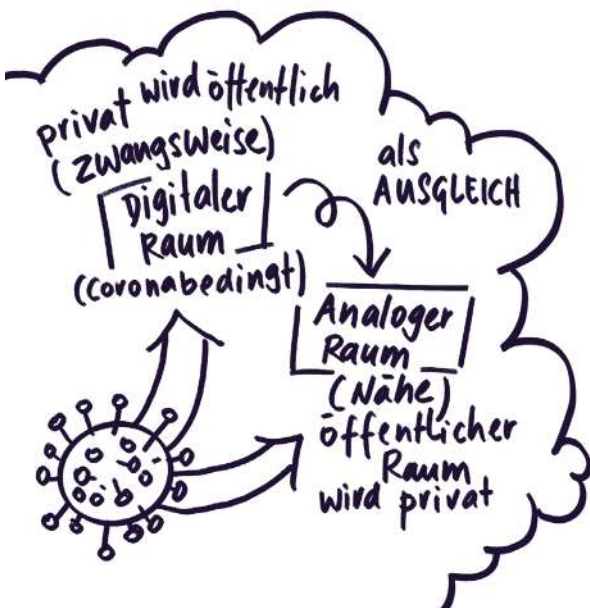 privat wird öffentlich
(zwangsweise)
Digitaler
Raum
(coronabedingt)
als
AUSGLEICH
Analoger
Raum
(Nähe)
öffentlicher
Raum
wird privat